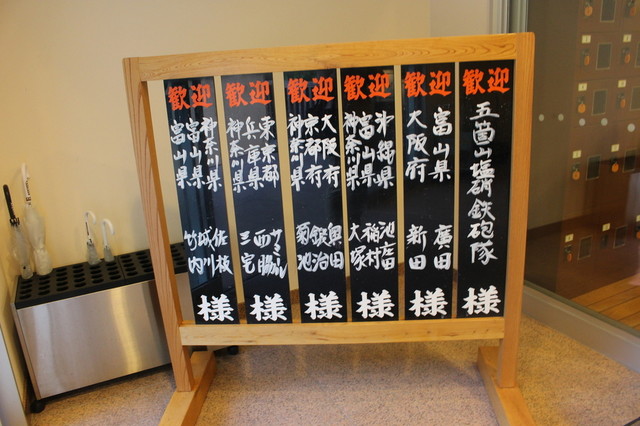 歓迎
五箇山塩硝鉄砲隊
様
歓迎
富山県 廣田
大阪府 新田
様
歓迎
沖縄県 池廣田
富山県 稲村
神奈川県 大塚
様
歓迎
大阪府 奥田
京都府 鍛治
神奈川県 菊池
様
歓迎
東京都
兵庫県 西勝
神奈川県 三宅
様
歓迎
神奈川県 佐枝
富山県 城川
富山県 竹内
様